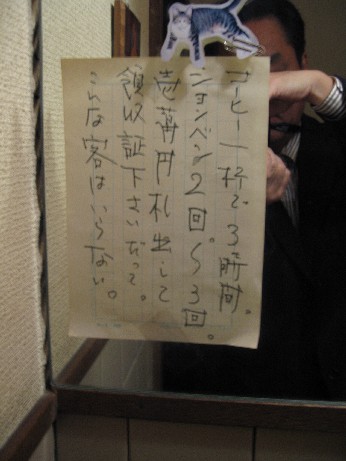 コーヒー一杯で3時間。
ションベン2回。〜3回。
壱萬円札出して
領収証下さいだって。
こんな客はいらない。